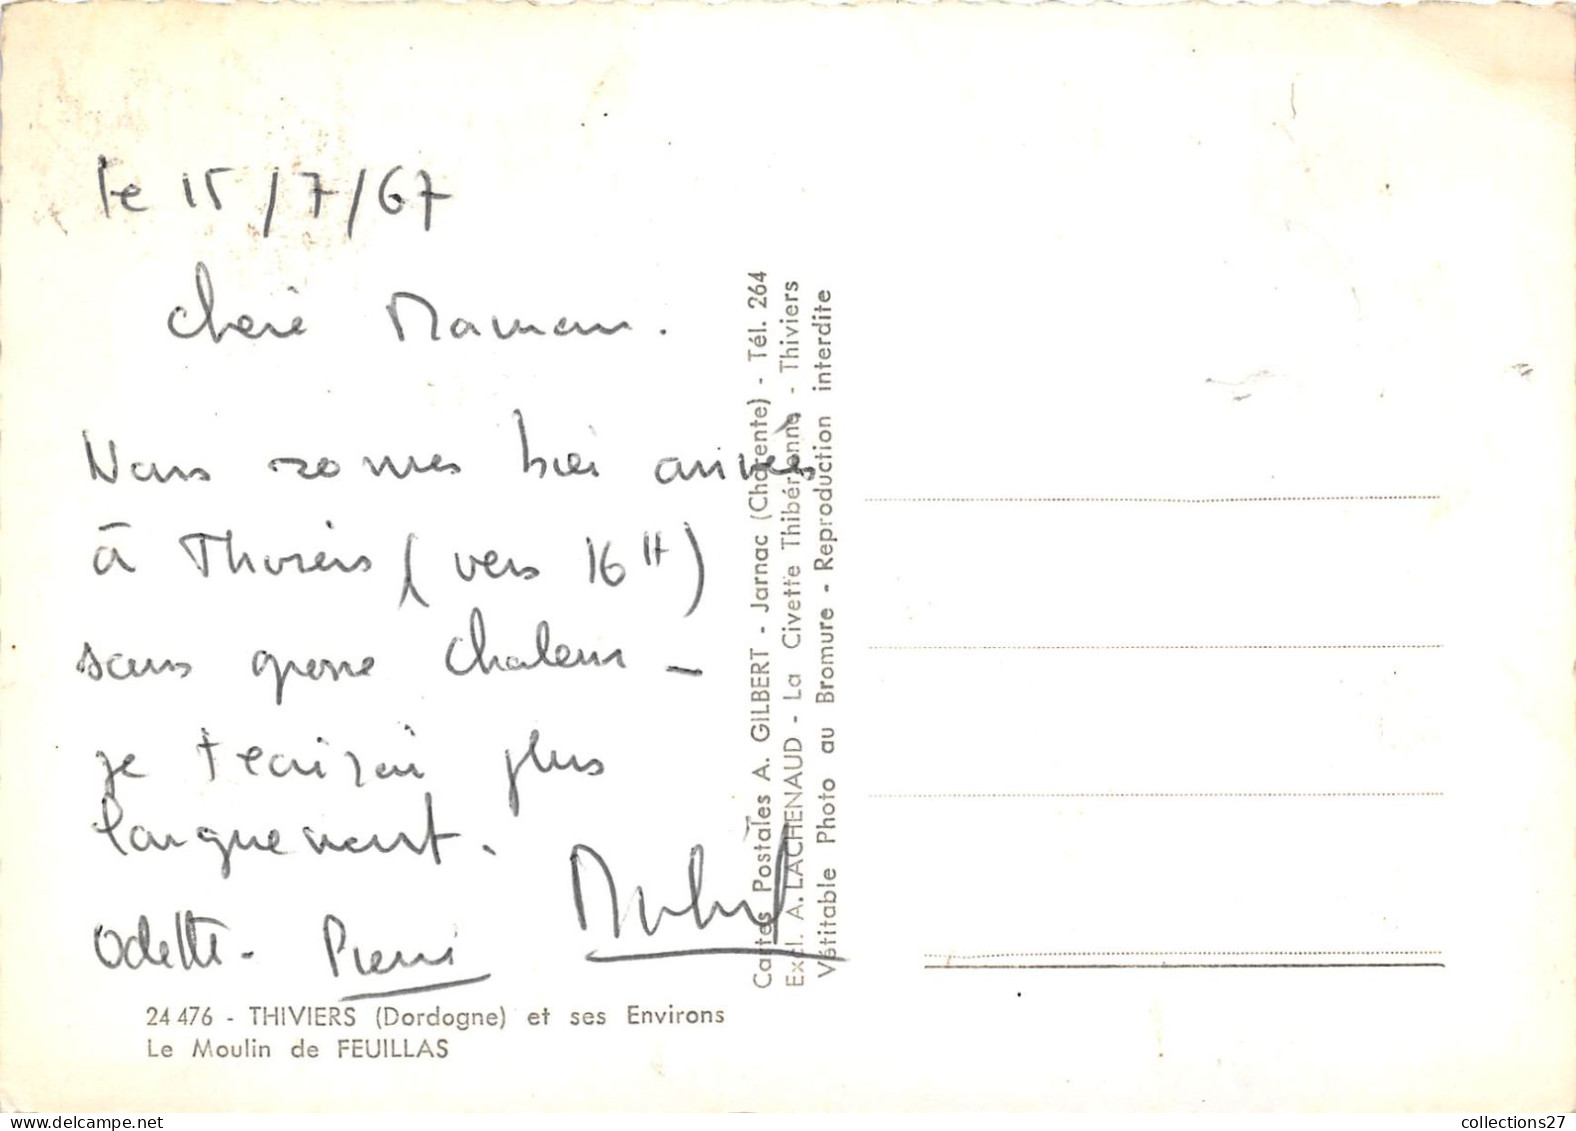 le 15/7/67
Chère Maman.
Nous sommes hier arrivés
à Thiviers (vers 16H)
sans grosse chaleur -
je t'écrirai plus
longuement.
Odette - Pierre
24 476 - THIVIERS (Dordogne) et ses Environs
Le Moulin de FEUILLAS
Cartes Postales A. GILBERT - Jarnac (Charente) - Tél. 264
Excl. A. LACHENAUD - La Civette Thibérienne - Thiviers
Vétitable Photo au Bromure - Reproduction interdite
collections27